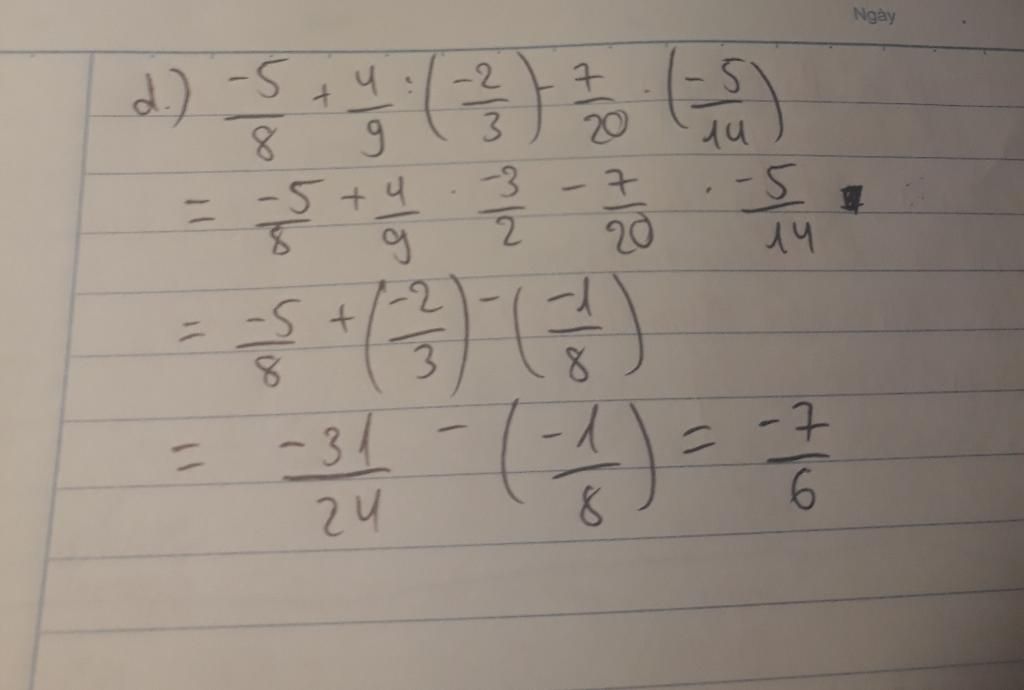 Ngày
d.) \frac{-5}{8} + \frac{4}{9} : \left(\frac{-2}{3}\right) - \frac{7}{20} \cdot \left(\frac{-5}{14}\right)
= \frac{-5}{8} + \frac{4}{9} \cdot \frac{-3}{2} - \frac{7}{20} \cdot \frac{-5}{14}
= \frac{-5}{8} + \left(\frac{-2}{3}\right) - \left(\frac{-1}{8}\right)
= \frac{-31}{24} - \left(\frac{-1}{8}\right) = \frac{-7}{6}